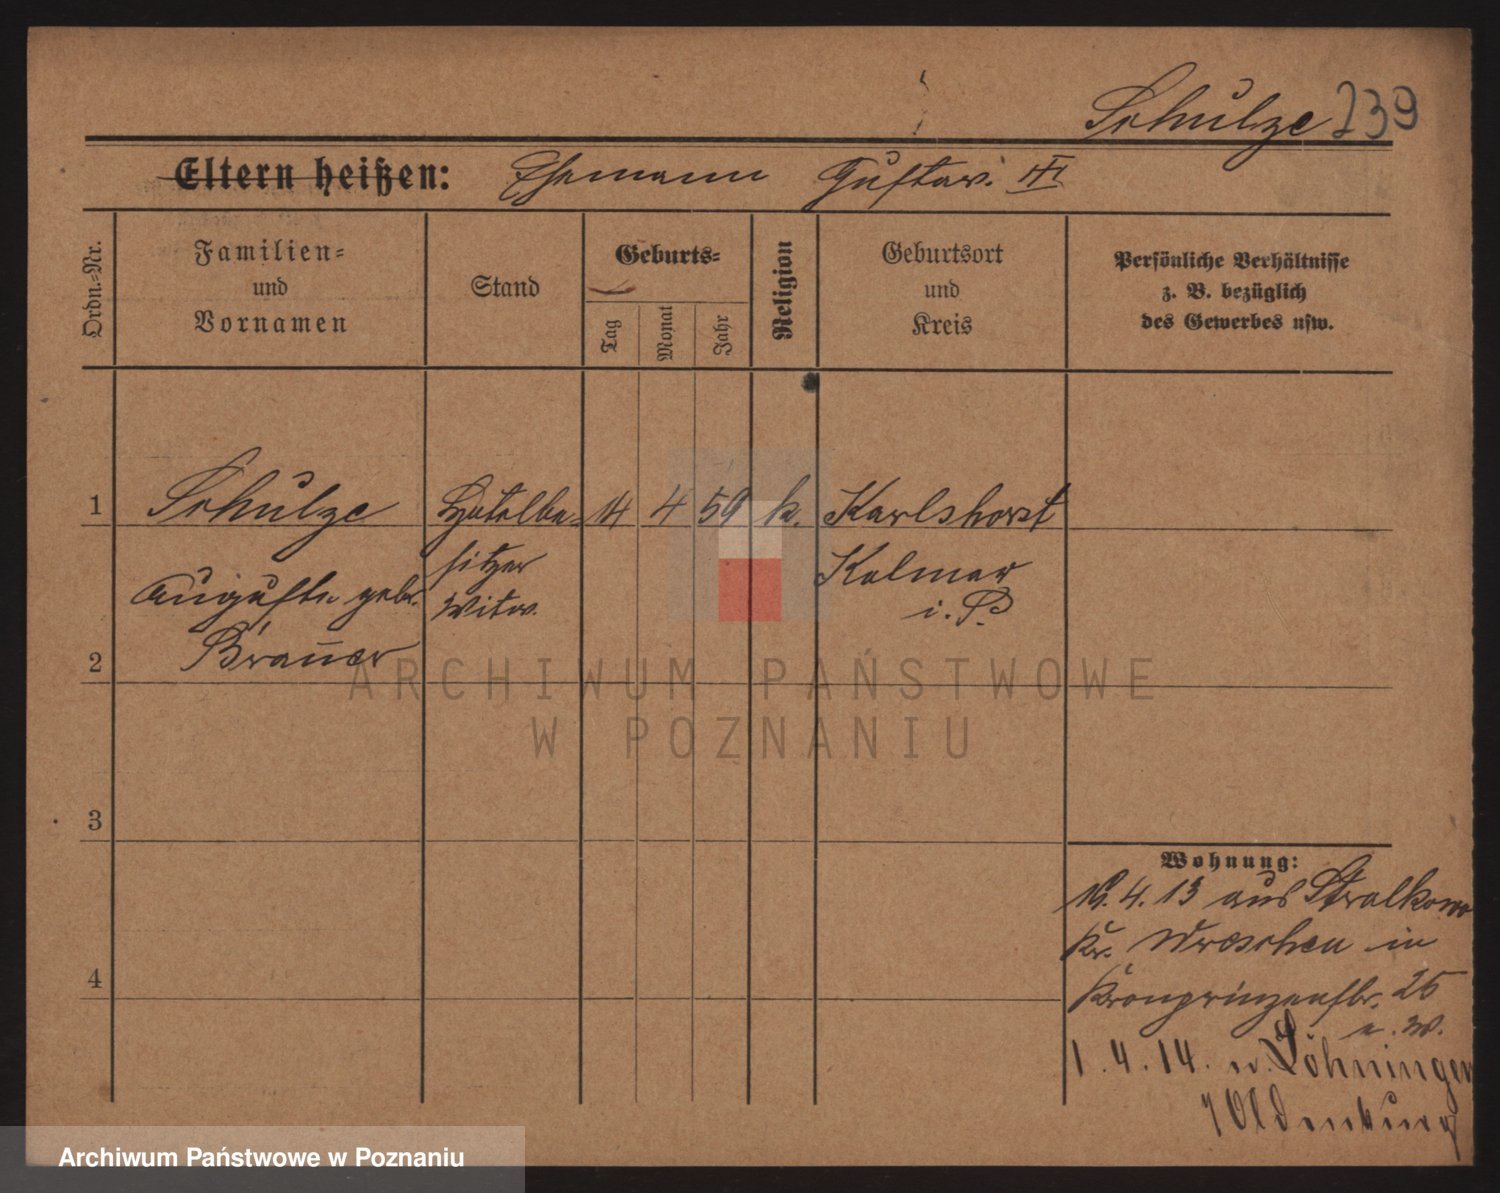 Schulze 239
Eltern heißen: Ehemann Gustav.
Ordn.-Nr.
Familien-
und
Vornamen
Stand
Geburts-
Tag
Monat
Jahr
Religion
Geburtsort
und
Kreis
Persönliche Verhältnisse
z. B. bezüglich
des Gewerbes usw.
1 Schulze Hotelbe- 14 4 59 k. Karlshorst
sitzer Kolmar
Auguste geb. Witw. i. P.
2 Brauer
ARCHIWUM PAŃSTWOWE
W POZNANIU
3
Wohnung:
4. 13 aus Stralkowo
Kr. Wreschen in
4 Kronprinzenstr. 25
1.4.14. n. Löhningen
Oldenburg
Archiwum Państwowe w Poznaniu